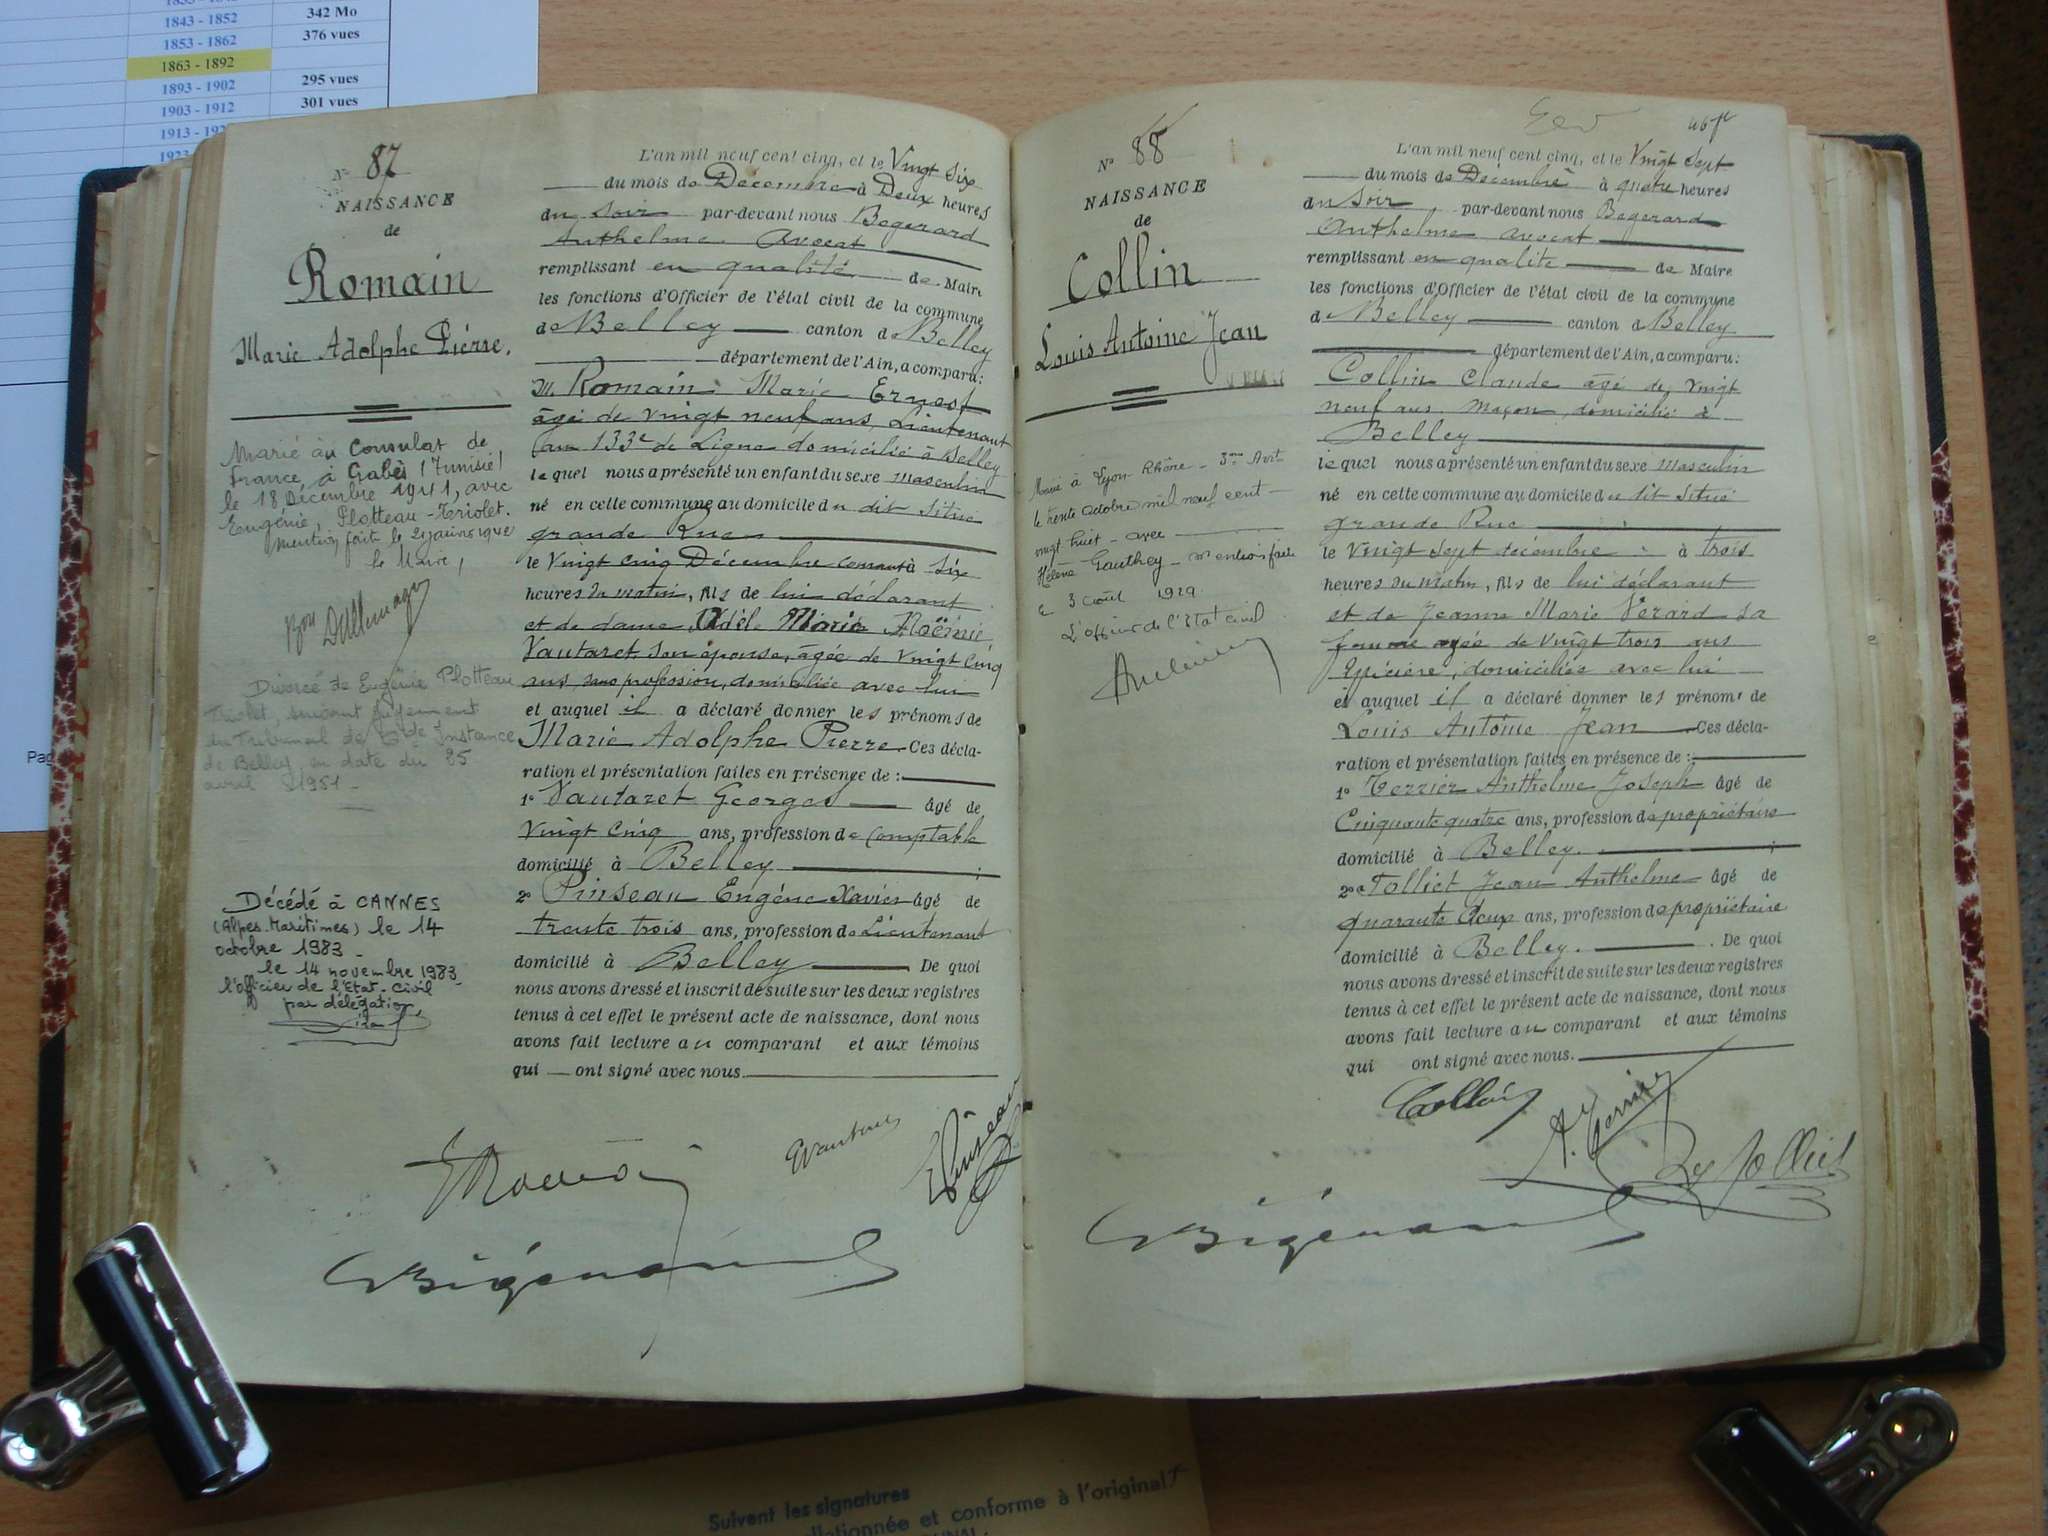 1843 - 1852 342 Mo
1853 - 1862 376 vues
1863 - 1892
1893 - 1902 295 vues
1903 - 1912 301 vues
1913 - 192
1923
Pag
N° 87
NAISSANCE
de
Romain
Marie Adolphe Pierre.
Marié au Consulat de
France à Gabès (Tunisie)
le 18 Décembre 1941, avec
Eugénie, Plotteau-Triolet.
Mention faite le 21 janvier 1942
le Maire,
Divorcé de Eugénie Plotteau
Triolet, suivant jugement
du Tribunal de Gde Instance
de Belley en date du 25
avril 1951 -
Décédé à CANNES
(Alpes-Maritimes) le 14
octobre 1983 -
le 14 novembre 1983
l'officier de l'Etat-Civil
par délégation,
L'an mil neuf cent cinq, et le Vingt Six
du mois de Décembre à Deux heures
du Soir par-devant nous Begerard
Anthelme Avocat
remplissant en qualité de Maire
les fonctions d'Officier de l'état civil de la commune
de Belley canton de Belley
département de l'Ain, a comparu:
M. Romain Marie Ernest
âgé de vingt neuf ans, Lieutenant
au 133e de Ligne domicilié à Belley
lequel nous a présenté un enfant du sexe masculin
né en cette commune au domicile du dit situé
grande Rue
le Vingt Cinq Décembre courant à Six
heures du matin, fils de lui déclarant
et de dame Adèle Marie Noëmie
Vautaret son épouse, âgée de vingt Cinq
ans, sans profession, domiciliée avec lui
et auquel il a déclaré donner les prénoms de
Marie Adolphe Pierre Ces décla-
ration et présentation faites en présence de :
1° Vautaret Georges âgé de
Vingt Cinq ans, profession de Comptable
domicilié à Belley ;
2° Pinseau Eugène Xavier âgé de
trente trois ans, profession de Lieutenant
domicilié à Belley De quoi
nous avons dressé et inscrit de suite sur les deux registres
tenus à cet effet le présent acte de naissance, dont nous
avons fait lecture au comparant et aux témoins
qui ont signé avec nous.
N° 88
NAISSANCE
de
Collin
Louis Antoine Jean
Marié à Lyon Rhône - 3me Arrt
le trente octobre mil neuf cent
vingt huit - avec
Hélène Gauthey - mention faite
le 3 Août 1929
L'officier de l'Etat civil
L'an mil neuf cent cinq, et le Vingt Sept
du mois de Décembre à quatre heures
du Soir, par-devant nous Begerard
Anthelme avocat
remplissant en qualité de Maire
les fonctions d'Officier de l'état civil de la commune
de Belley canton de Belley
département de l'Ain, a comparu:
Collin Claude âgé de vingt
neuf ans Maçon, domicilié à
Belley
lequel nous a présenté un enfant du sexe masculin
né en cette commune au domicile du dit situé
grande Rue
le Vingt Sept décembre à trois
heures du matin, fils de lui déclarant
et de Jeanne Marie Verard sa
femme agée de vingt trois ans
Epicière, domiciliée avec lui
et auquel il a déclaré donner les prénoms de
Louis Antoine Jean Ces décla-
ration et présentation faites en présence de :
1° Terrier Anthelme Joseph âgé de
Cinquante quatre ans, profession de propriétaire
domicilié à Belley. ;
2° Tolliet Jean Anthelme âgé de
quarante Deux ans, profession de propriétaire
domicilié à Belley. De quoi
nous avons dressé et inscrit de suite sur les deux registres
tenus à cet effet le présent acte de naissance, dont nous
avons fait lecture au comparant et aux témoins
qui ont signé avec nous.
Suivent les signatures
collationnée et conforme à l'original